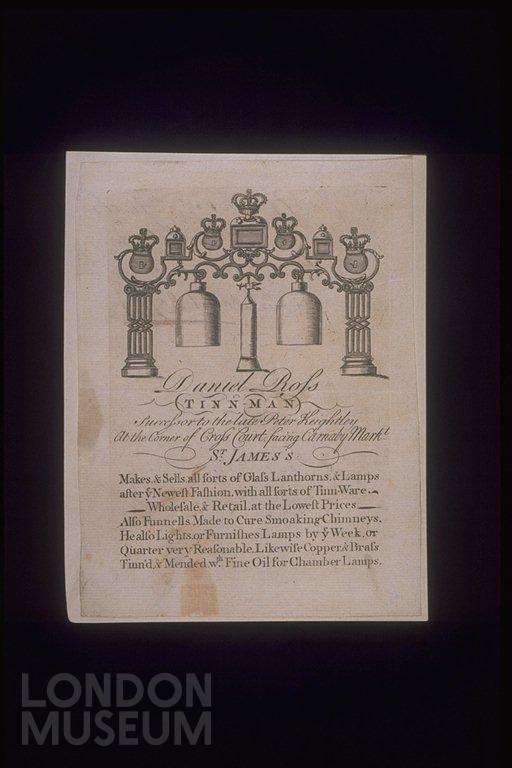 Daniel Roſs
TINN-MAN
Succeſsor to the late Peter Keighley
At the Corner of Croſs Court, facing Carnaby Markt
St. JAMES'S
Makes, & Sells, all ſorts of Glaſs Lanthorns, & Lamps
after ye Neweſt Faſhion, with all ſorts of Tinn-Ware
Wholeſale, & Retail, at the Loweſt Prices
Alſo Funnells Made to Cure Smoaking Chimneys.
He alſo Lights, or Furniſhes Lamps by ye Week, or
Quarter very Reaſonable. Likewiſe Copper, & Braſs
Tinn'd, & Mended, wth. Fine Oil for Chamber Lamps.
LONDON
MUSEUM